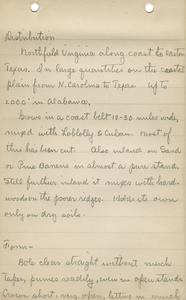 Distribution
Northfield Virginia along coast to eastern
Texas. In large quantities on the coastal
plain from N. Carolina to Texas. Up to
2000' in Alabama.
Grows in a coast belt 12-20 miles wide,
mixed with Loblolly & Cuban. Most of
this has been cut. Also inland on Sand
or Pine Barrens in almost a pure stand.
Still further inland it mixes with hard-
woods on the poorer ridges. Holds its own
only on dry soils.
Form -
Bole clear straight without much
taper, prunes readily, even in open stands.
Crown short, very open, letting in much